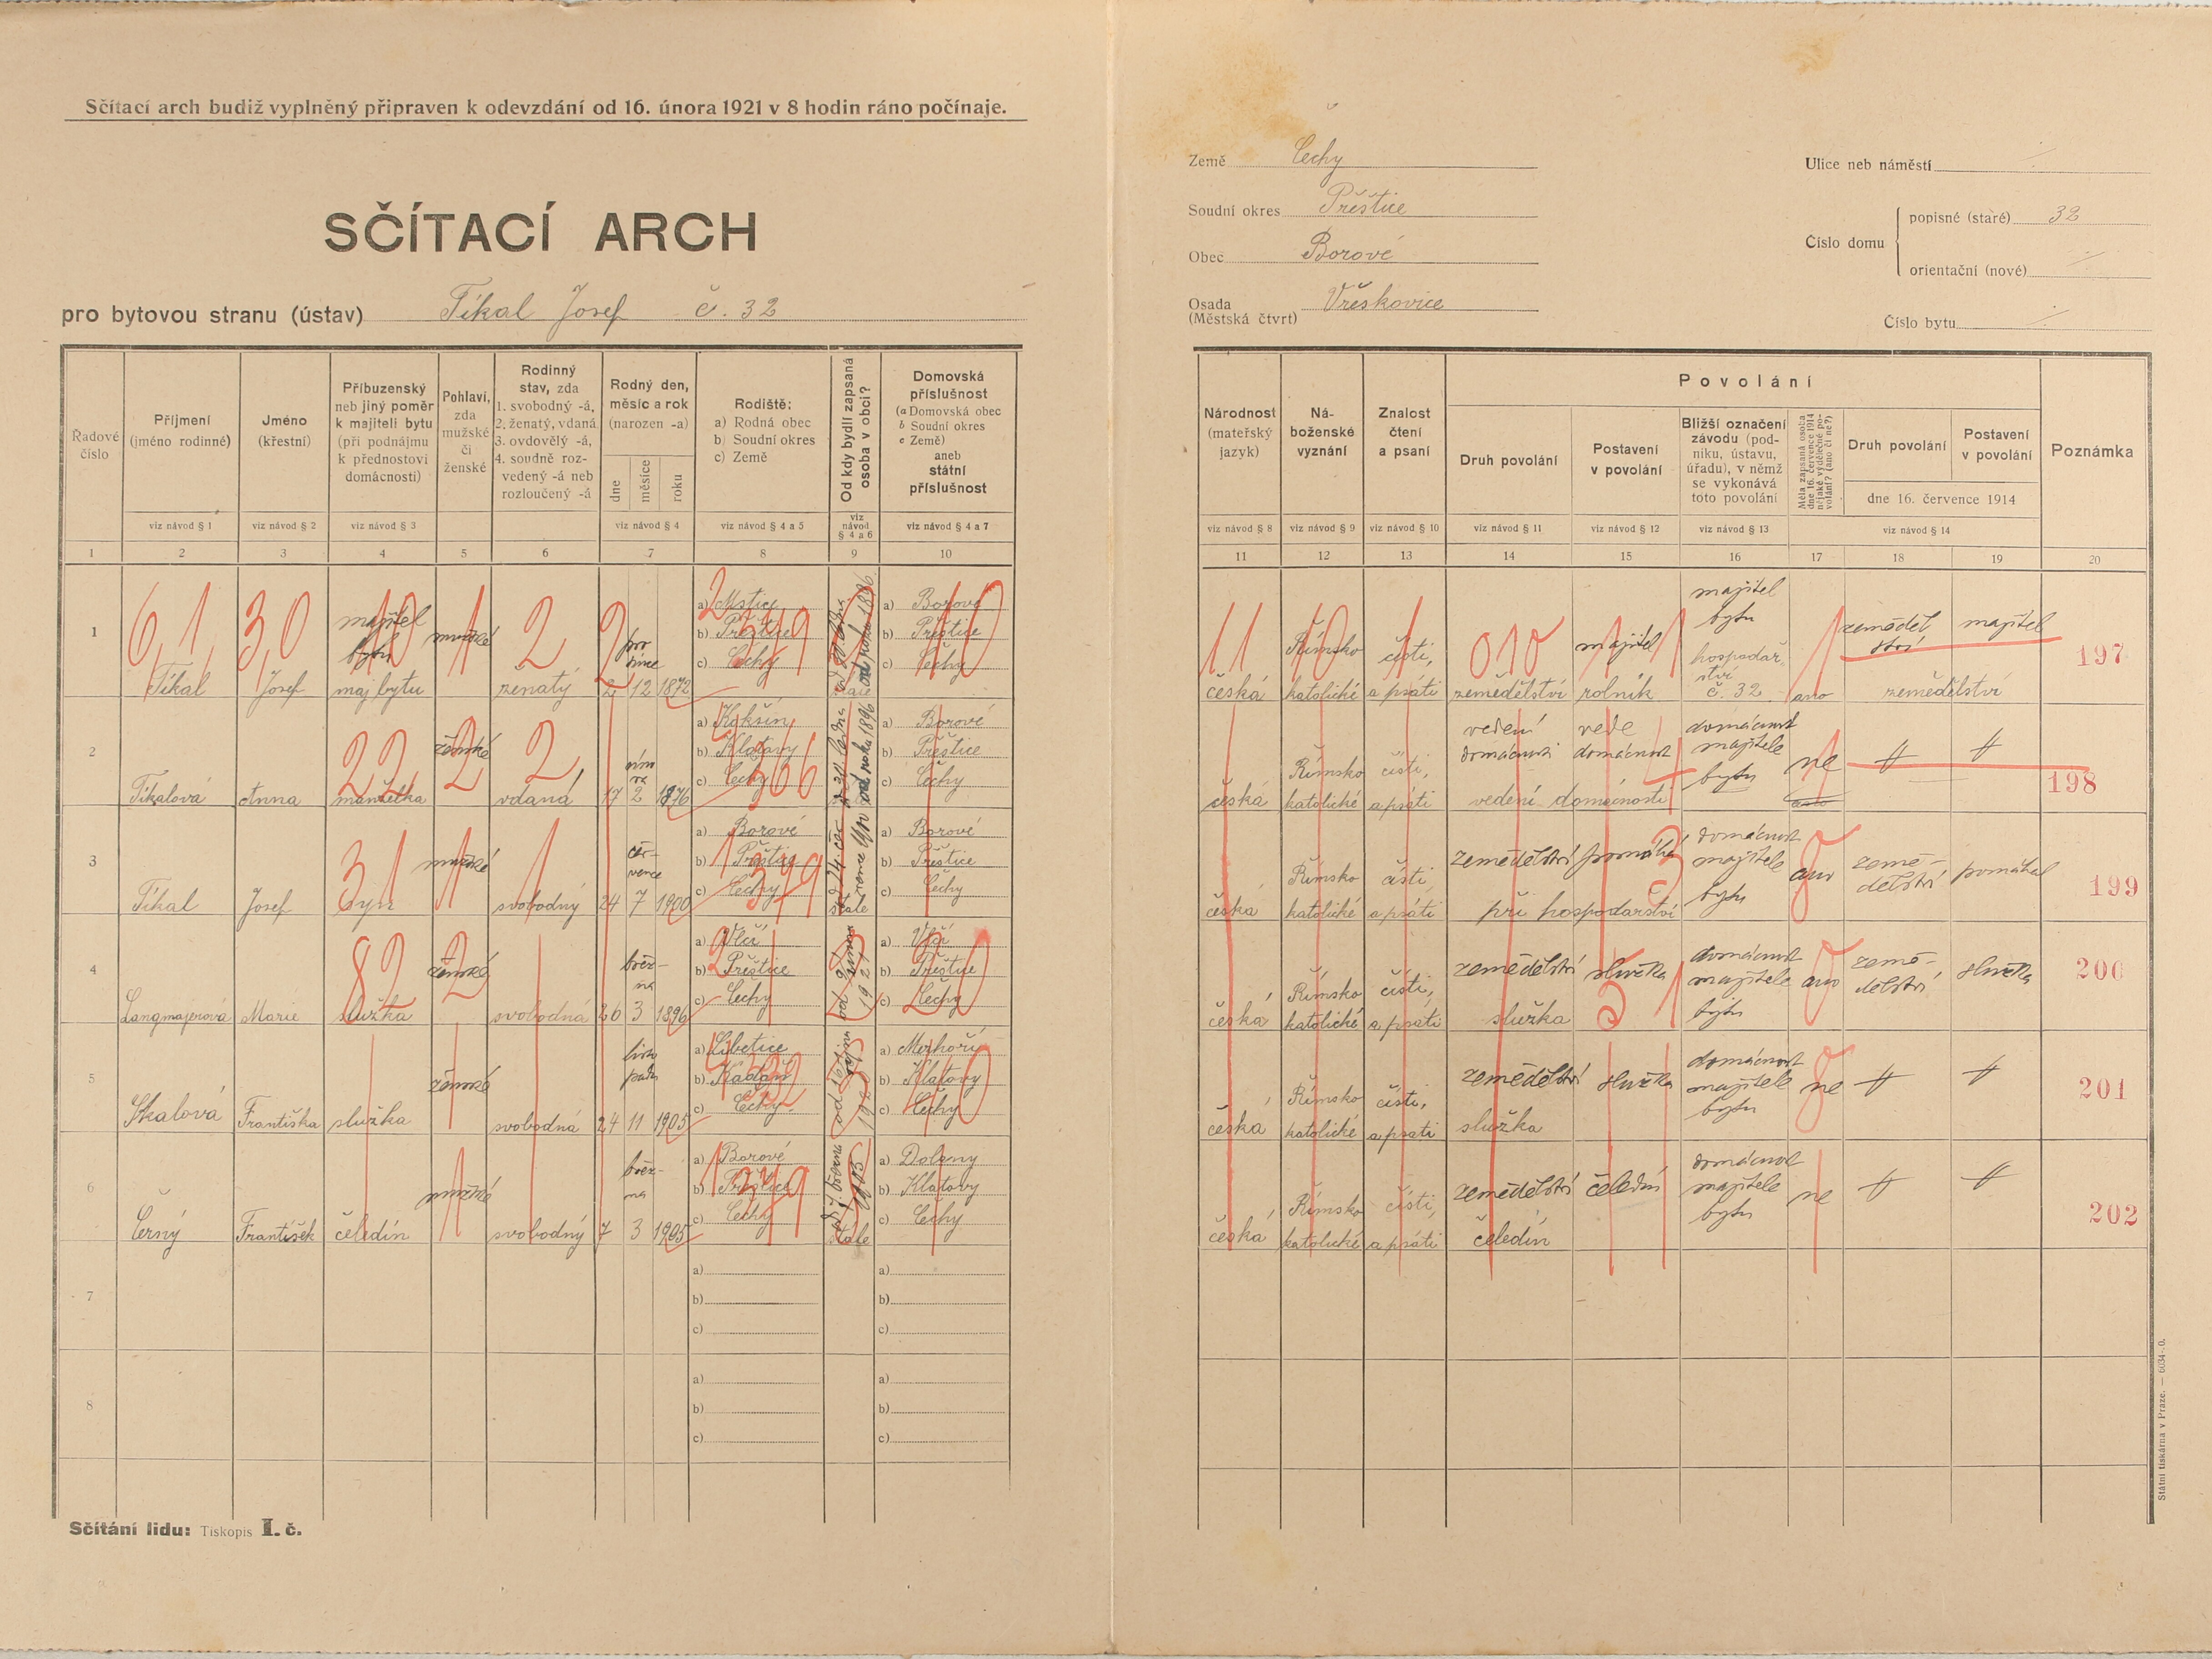 Sčítací arch budiž vyplněný připraven k odevzdání od 16. února 1921 v 8 hodin ráno počínaje.
SČÍTACÍ ARCH
pro bytovou stranu (ústav) Tíkal Josef č. 32
Země Čechy
Soudní okres Přeštice
Obec Borové
Osada Vřeskovice
(Městská čtvrt)
Ulice neb náměstí ./.
Číslo domu
popisné (staré) 32
orientační (nové) ./.
Číslo bytu ./.
Řadové číslo
Příjmení (jméno rodinné)
Jméno (křestní)
Příbuzenský neb jiný poměr k majiteli bytu (při podnájmu k přednostovi domácnosti)
Pohlaví, zda mužské či ženské
Rodinný stav, zda 1. svobodný -á, 2. ženatý, vdaná 3. ovdovělý -á, 4. soudně rozvedený -á neb rozloučený -á
Rodný den, měsíc a rok (narozen -a)
dne měsíce roku
Rodiště: a) Rodná obec b) Soudní okres c) Země
Od kdy bydlí zapsaná osoba v obci?
Domovská příslušnost (a Domovská obec b Soudní okres c Země) aneb státní příslušnost
viz návod § 1 viz návod § 2 viz návod § 3 viz návod § 4 viz návod § 4 a 5 viz návod § 4 a 6 viz návod § 4 a 7
1 2 3 4 5 6 7 8 9 10
Národnost (mateřský jazyk)
Náboženské vyznání
Znalost čtení a psaní
Povolání
Druh povolání
Postavení v povolání
Bližší označení závodu (podniku, ústavu, úřadu), v němž se vykonává toto povolání
Měla zapsaná osoba dne 16. července 1914 nějaké výdělečné povolání? (ano či ne?)
Druh povolání
Postavení v povolání
dne 16. července 1914
Poznámka
viz návod § 8 viz návod § 9 viz návod § 10 viz návod § 11 viz návod § 12 viz návod § 13 viz návod § 14
11 12 13 14 15 16 17 18 19 20
1 Tíkal Josef majitel bytu maj bytu mužské ženatý 2 prosince 12 1872
a) Mstice b) Přeštice c) Čechy
od roku 1886
a) Borové b) Přeštice c) Čechy
česká Římsko katolické čísti, a psáti zemědělství majitel rolník majitel bytu hospodářství č. 32 ano zemědělství majitel zemědělství 197
2 Tíkalová Anna manželka ženské vdaná 17 února 2 1876
a) Kokšín b) Klatovy c) Čechy
od roku 1896
a) Borové b) Přeštice c) Čechy
česká Římsko katolické čísti, a psáti vedení domácnosti vede domácnost vedení domácnosti domácnost majitele bytu ne 198
3 Tíkal Josef syn mužské svobodný 24 července 7 1900
a) Borové b) Přeštice c) Čechy
od 24. července 1900 stále
a) Borové b) Přeštice c) Čechy
česká Římsko katolické čísti a psáti zemědělství pomáhá při hospodářství domácnost majitele bytu ano zemědělství pomáhal 199
4 Langmajerová Marie služka ženské svobodná 26 března 3 1896
a) Vlčí b) Přeštice c) Čechy
února 1921
a) Vlčí b) Přeštice c) Čechy
česká Římsko katolické čísti, a psáti zemědělství služka služka domácnost majitele bytu ano zemědělství služka 200
5 Skalová Františka služka ženské svobodná 24 listopadu 11 1905
a) Libětice b) Kadaň c) Čechy
a) Měchoří b) Klatovy c) Čechy
česká Římsko katolické čísti, a psáti zemědělství služka služka domácnost majitele bytu ne 201
6 Černý František čeledín mužské svobodný 7 března 3 1905
a) Borové b) Přeštice c) Čechy
od 7. března 1905 stále
a) Dolany b) Klatovy c) Čechy
česká Římsko katolické čísti, a psáti zemědělství čeledín čeledín domácnost majitele bytu ne 202
7 a) b) c) a) b) c)
8 a) b) c) a) b) c)
Sčítání lidu: Tiskopis I. č.
Státní tiskárna v Praze. — 6034-.0.